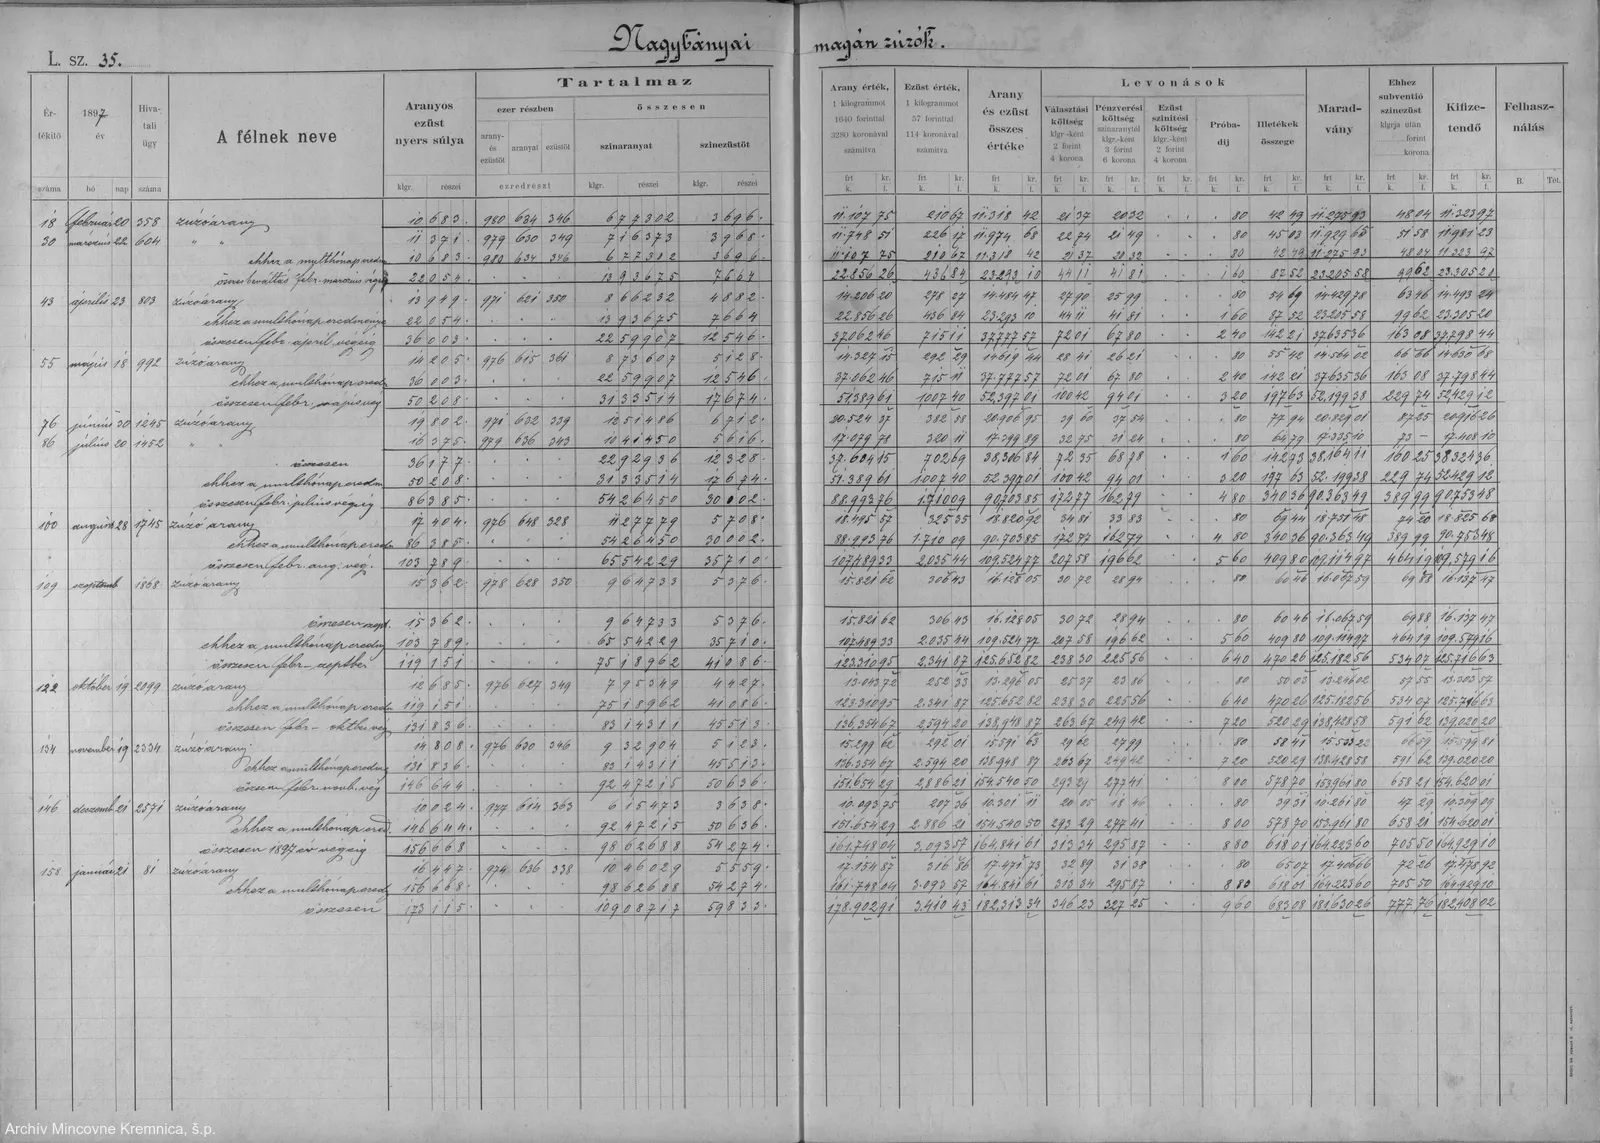 Nagybányai magán zúzók.
L. sz. 35.
Ér-
tékitő
száma
1897
év
hó nap
Hiva-
tali
ügy
száma
A félnek neve
Aranyos
ezüst
nyers súlya
klgr. részei
Tartalmaz
ezer részben
arany-
és
ezüstöt
aranyat
ezüstöt
ezredrészt
összesen
színaranyat
klgr. részei
színezüstöt
klgr. részei
Arany érték,
1 kilogrammot
1640 forinttal
3280 koronával
számitva
frt kr.
k. f.
Ezüst érték,
1 kilogrammot
57 forinttal
114 koronával
számitva
frt kr.
k. f.
Arany
és ezüst
összes
értéke
frt kr.
k. f.
Levonások
Választási
költség
klgr.-ként
2 forint
4 korona
frt kr.
k. f.
Pénzverési
költség
színaranytól
klgr.-ként
3 forint
6 korona
frt kr.
k. f.
Ezüst
színitési
költség
klgr.-ként
2 forint
4 korona
frt kr.
k. f.
Próba-
dij
frt kr.
k. f.
Illetékek
összege
frt kr.
k. f.
Marad-
vány
frt kr.
k. f.
Ehhez
subventió
színezüst
klgrja után
forint
korona
frt kr.
k. f.
Kifize-
tendő
frt kr.
k. f.
Felhasz-
nálás
B. Tét.
18 február 20 358 zúzóarany 10 683 980 634 346 6 77302 3 696 11.107 75 210 67 11.318 42 21 37 20 32 80 42 49 11.275 93 48 04 11.323 97
30 márczius 22 604 " " 11 371 979 630 349 7 16373 3 968 11.748 51 226 17 11.974 68 22 74 21 49 80 45 03 11.929 65 51 58 11.981 23
10 683 980 634 346 6 77302 3 696 11.107 75 210 67 11.318 42 21 37 20 32 80 42 49 11.275 93 48 04 11.323 97
22 054 13 93675 7 664 22.856 26 436 84 23.293 10 44 11 41 81 1 60 87 52 23.205 58 99 62 23.305 20
43 április 23 803 zúzóarany 13 949 971 621 350 8 66232 4 882 14.206 20 278 27 14.484 47 27 90 25 99 80 54 69 14.429 78 63 46 14.493 24
ehhez a multhónap eredménye 22 054 13 93675 7 664 22.856 26 436 84 23.293 10 44 11 41 81 1 60 87 52 23.205 58 99 62 23.305 20
összesen febr. april végéig 36 003 22 59907 12 546 37.062 46 715 11 37.777 57 72 01 67 80 2 40 142 21 37.635 36 163 08 37.798 44
55 május 18 992 zúzóarany 14 205 976 615 361 8 73607 5 128 14.327 15 292 29 14.619 44 28 41 26 21 80 55 42 14.564 02 66 66 14.630 68
36 003 22 59907 12 546 37.062 46 715 11 37.777 57 72 01 67 80 2 40 142 21 37.635 36 163 08 37.798 44
50 208 31 33514 17 674 51.389 61 1007 40 52.397 01 100 42 94 01 3 20 197 63 52.199 38 229 74 52.429 12
76 június 30 1245 zúzóarany 19 802 971 632 339 12 51486 6 712 20.524 37 382 58 20.906 95 39 60 37 54 80 77 94 20.829 01 87 25 20.916 26
86 július 20 1452 " " 16 375 979 636 343 10 41450 5 616 17.079 78 320 11 17.399 89 32 75 31 24 80 64 79 17.335 10 73 – 17.408 10
összesen 36 177 22 92936 12 328 37.604 15 702 69 38.306 84 72 35 68 78 1 60 142 73 38.164 11 160 25 38.324 36
50 208 31 33514 17 674 51.389 61 1007 40 52.397 01 100 42 94 01 3 20 197 63 52.199 38 229 74 52.429 12
összesen febr. julius végéig 86 385 54 26450 30 002 88.993 76 1.710 09 90.703 85 172 77 162 79 4 80 340 36 90.363 49 389 99 90.753 48
100 august 28 1745 zúzóarany 17 404 976 648 328 11 27779 5 708 18.495 57 325 35 18.820 92 34 81 33 83 80 69 44 18.751 48 74 20 18.825 68
86 385 54 26450 30 002 88.993 76 1.710 09 90.703 85 172 77 162 79 4 80 340 36 90.363 49 389 99 90.753 48
összesen febr. aug. vég. 103 789 65 54229 35 710 107.489 33 2.035 44 109.524 77 207 58 196 62 5 60 409 80 109.114 97 464 19 109.579 16
109 szeptemb 1868 zúzóarany 15 362 978 628 350 9 64733 5 376 15.821 62 306 43 16.128 05 30 72 28 94 80 60 46 16.067 59 69 88 16.137 47
összesen szept. 15 362 9 64733 5 376 15.821 62 306 43 16.128 05 30 72 28 94 80 60 46 16.067 59 69 88 16.137 47
103 789 65 54229 35 710 107.489 33 2.035 44 109.524 77 207 58 196 62 5 60 409 80 109.114 97 464 19
összesen febr. szeptbr. 119 151 75 18962 41 086 123.310 95 2.341 87 125.652 82 238 30 225 56 6 40 470 26 125.182 56 534 07 125.716 63
122 október 19 2099 zúzóarany 12 685 976 627 349 7 95349 4 427 13.043 72 252 33 13.296 05 25 37 23 86 80 50 03 13.246 02 57 55 13.303 57
119 151 75 18962 41 086 123.310 95 2.341 87 125.652 82 238 30 225 56 6 40 470 26 125.182 56 534 07 125.716 63
131 836 83 14311 45 513 136.354 67 2594 20 138.948 87 263 67 249 42 7 20 520 29 138.428 58 591 62 139.020 20
134 november 19 2334 zúzóarany 14 808 976 630 346 9 32904 5 123 15.299 62 292 01 15.591 63 29 62 27 99 80 58 41 15.533 22 66 59 15.599 81
131 836 83 14311 45 513 136.354 67 2.594 20 138.948 87 263 67 249 42 7 20 520 29 138.428 58 591 62 139.020 20
146 644 92 47215 50 636 151.654 29 2.886 21 154.540 50 293 29 277 41 8 00 578 70 153.961 80 658 21 154.620 01
146 deczemb 21 2571 zúzóarany 10 024 977 614 363 6 15473 3 638 10.093 75 207 36 10.301 11 20 05 18 46 80 39 31 10.261 80 47 29 10.309 09
146 644 92 47215 50 636 151.654 29 2.886 21 154.540 50 293 29 277 41 8 00 578 70 153.961 80 658 21 154.620 01
összesen 1897 év végéig 156 668 98 62688 54 274 161.748 04 3.093 57 164.841 61 313 34 295 87 8 80 618 01 164.223 60 705 50 164.929 10
158 január 21 81 zúzóarany 16 447 974 636 338 10 46029 5 559 17.154 87 316 86 17.471 73 32 89 31 38 80 65 07 17.406 66 72 26 17.478 92
156 668 98 62688 54 274 161.748 04 3.093 57 164.841 61 313 34 295 87 618 01 164.223 60 705 50 164.929 10
összesen 173 115 109 08717 59 833 178.902 91 3.410 43 182.313 34 346 23 327 25 9 60 683 08 181.630 26 777 76 182.408 02
Archív Mincovne Kremnica, š.p.